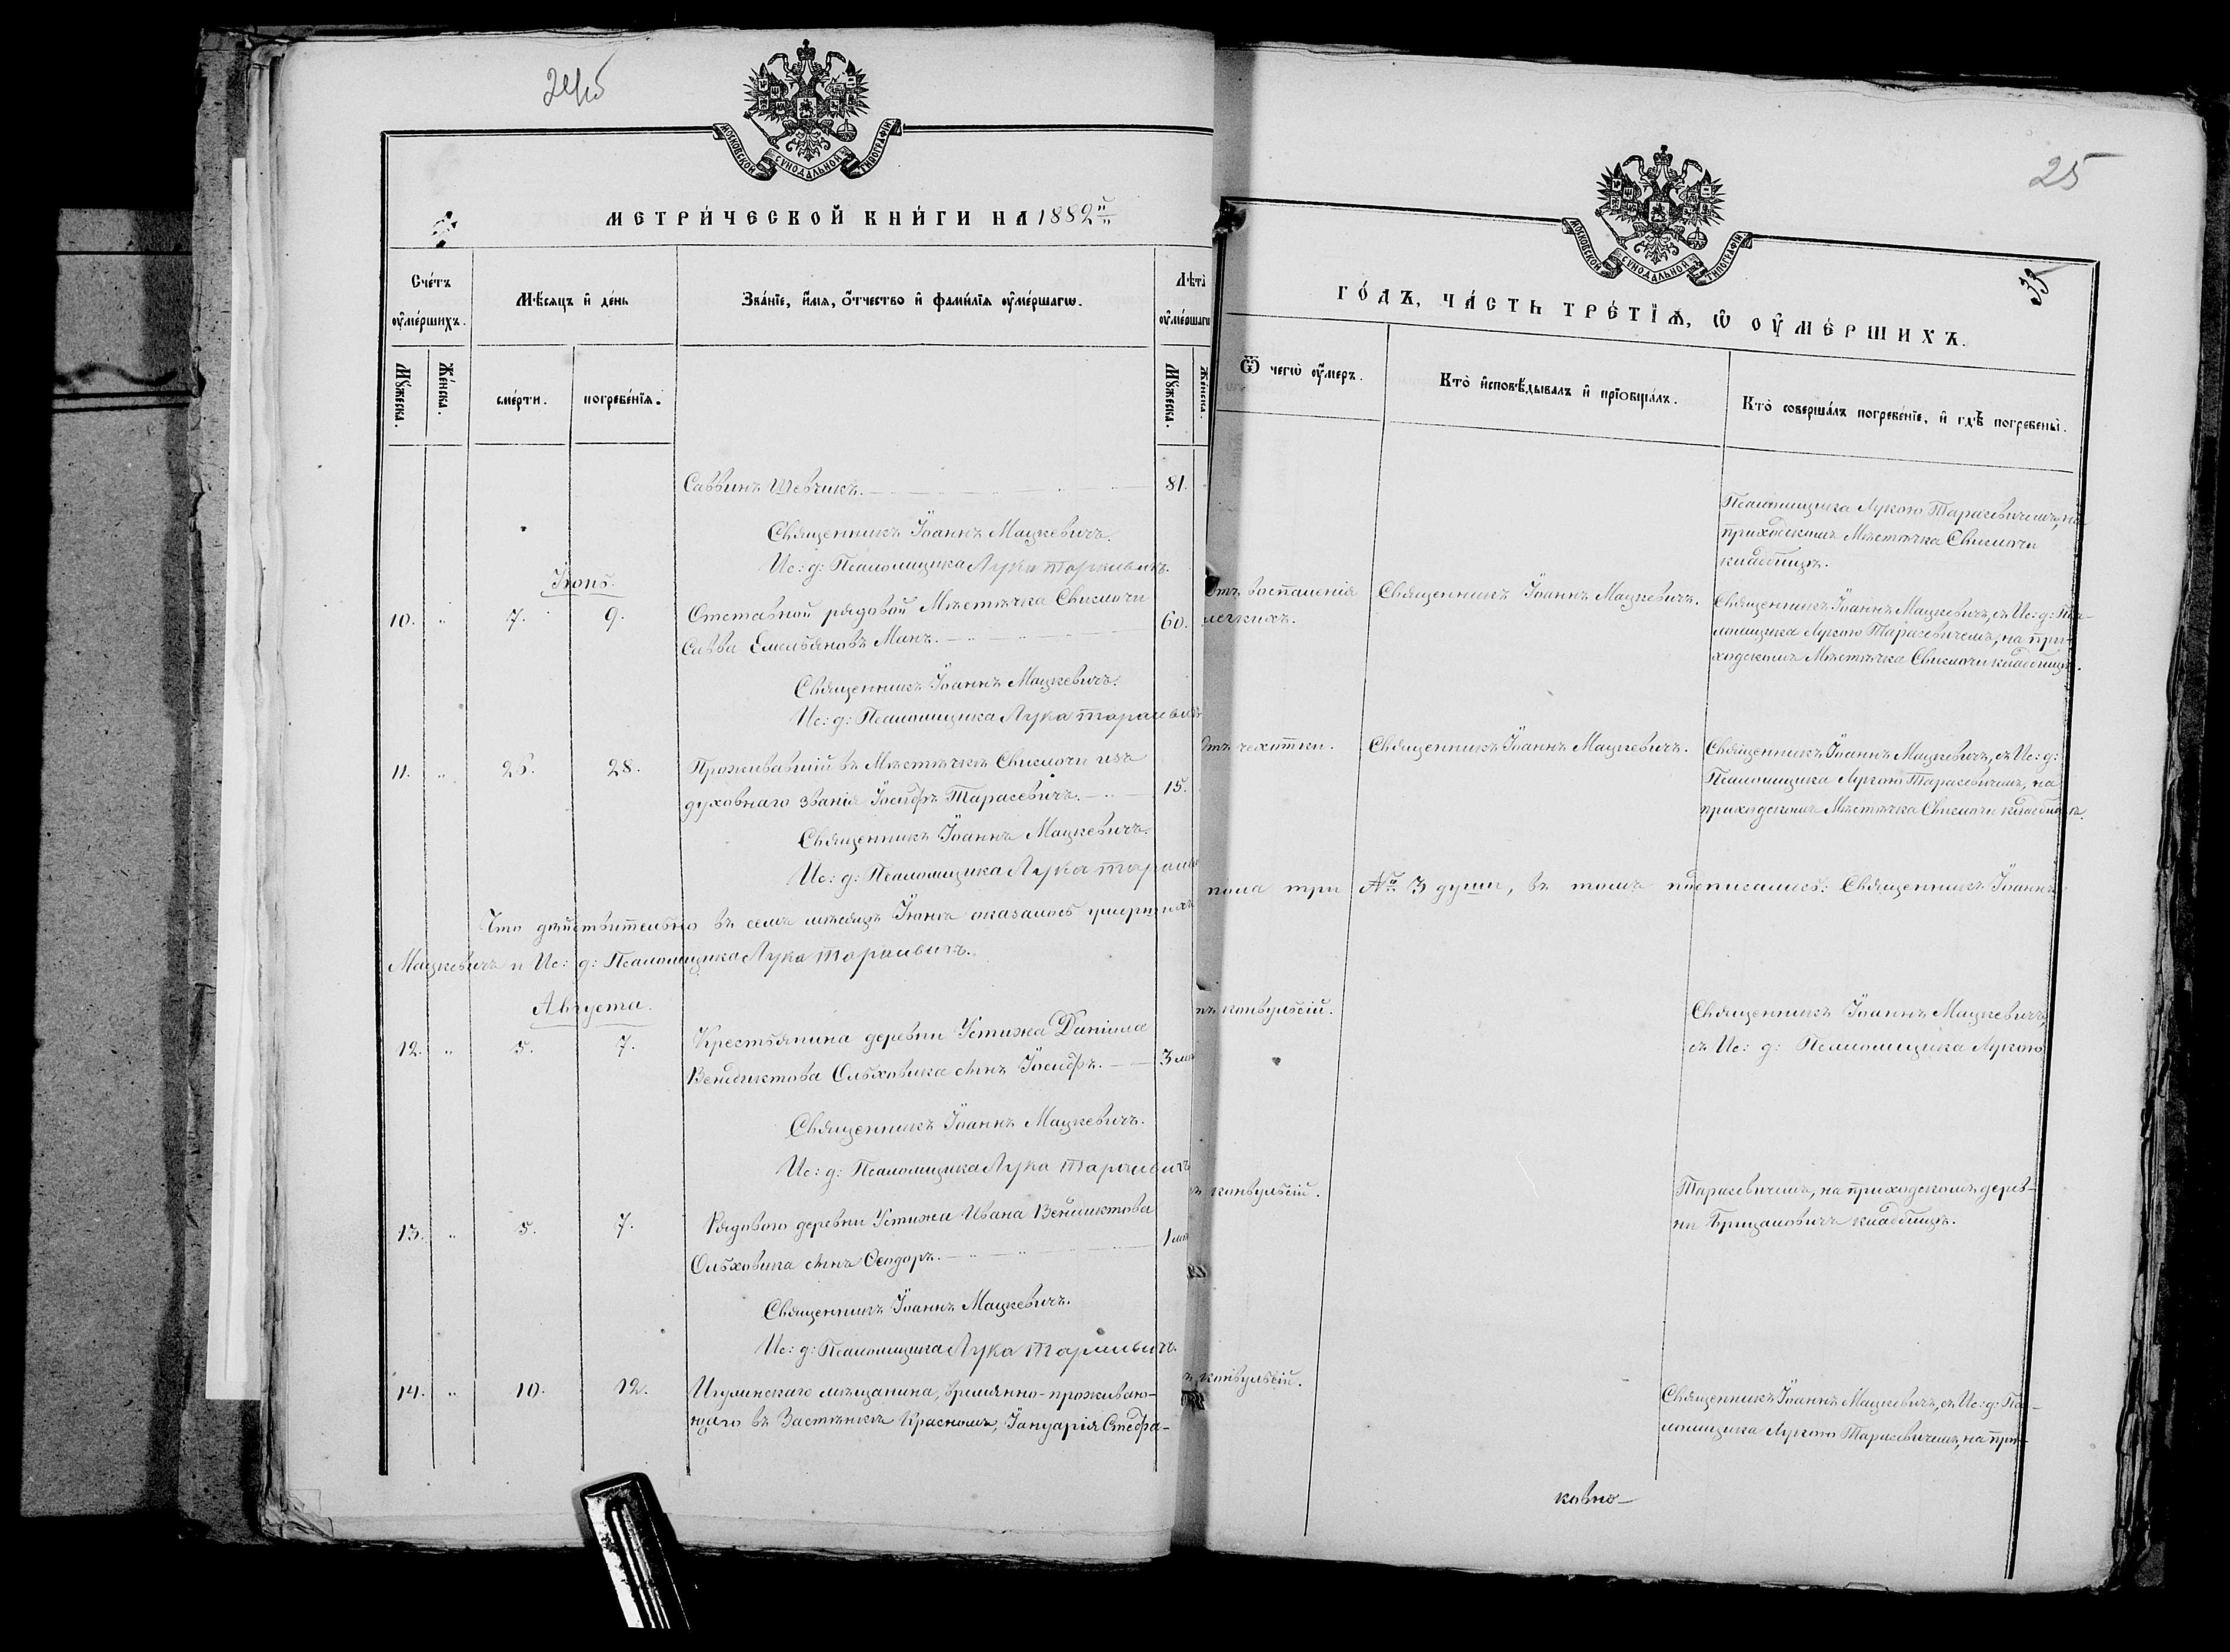 МОСКОВСКОЙ СУНОДАЛЬНОЙ ТИПОГРАФІИ
МЕТРИЧЕСКОЙ КНИГИ НА 1882й
Счетъ оумершихъ.
Мѣсяцъ и день
Званіе, имя, отчество и фамилія оумершагω.
Лѣта оумершагω
Мужеска.
Женска.
смерти.
погребенія.
Мужеска.
Женска.
Саввинъ Шевчикъ. 81.
Священникъ Іоаннъ Мацкевичъ.
Ис: д: Псаломщика Лука Тарасевичъ.
Іюнь.
10. " 7. 9. Отставной рядовой Мѣстечка Свислочи
Савва Емельяновъ Манъ. 60.
Священникъ Іоаннъ Мацкевичъ.
Ис: д: Псаломщика Лука Тарасевичъ
11. " 26. 28. Проживавшій въ Мѣстечкѣ Свислочи изъ
духовнаго званія Іосифъ Тарасевичъ. 15.
Священникъ Іоаннъ Мацкевичъ.
Ис: д: Псаломщика Лука Тарасе
Что дѣйствительно въ семъ мѣсяцѣ Іюнѣ оказалось умершихъ
Мацкевичъ и Ис: д: Псаломщика Лука Тарасевичъ.
Августа.
12. " 5. 7. Крестьянина деревни Устижа Даніила
Венедиктова Ольховика сынъ Іосифъ. 3 мѣ
Священникъ Іоаннъ Мацкевичъ.
Ис: д: Псаломщика Лука Тарасевичъ
13. " 5. 7. Рядового деревни Устижа Ивана Венедиктова
Ольховика сынъ Ѳеодоръ. 1 мѣ
Священникъ Іоаннъ Мацкевичъ.
Ис: д: Псаломщика Лука Тарасевичъ.
14. " 10. 12. Игуменскаго мѣщанина, временно-проживаю-
щаго въ Застѣнкѣ Красномъ, Іануарія Стефа-
25
МОСКОВСКОЙ СУНОДАЛЬНОЙ ТИПОГРАФІИ
35
ГОДЪ, ЧАСТЬ ТРЕТІЯ, Ѡ ОУМЕРШИХЪ.
Ѿ чегω оумеръ.
Кто исповѣдывалъ и пріобщалъ.
Кто совершалъ погребеніе, и гдѣ погребены.
Псаломщика Лукою Тарасевичемъ, на
приходскомъ Мѣстечка Свислочи
кладбищѣ.
Отъ воспаленія
легкихъ.
Священникъ Іоаннъ Мацкевичъ.
Священникъ Іоаннъ Мацкевичъ, съ Ис: д: Пса-
ломщика Лукою Тарасевичемъ, на при-
ходскомъ Мѣстечка Свислочи кладбищѣ.
Отъ чехотки.
Священникъ Іоаннъ Мацкевичъ.
Священникъ Іоаннъ Мацкевичъ, съ Ис: д:
Псаломщика Лукою Тарасевичемъ, на
приходскомъ Мѣстечка Свислочи кладбищѣ.
пола три № 3 души, въ томъ подписались: Священникъ Іоаннъ
тъ конвульсій.
Священникъ Іоаннъ Мацкевичъ,
съ Ис: д: Псаломщика Лукою
ъ конвульсій.
Тарасевичемъ, на приходскомъ дерев-
ни Брицаловичъ кладбищѣ.
ъ конвульсій.
Священникъ Іоаннъ Мацкевичъ, съ Ис: д: Пса-
ломщика Лукою Тарасевичемъ, на при-
ковно-